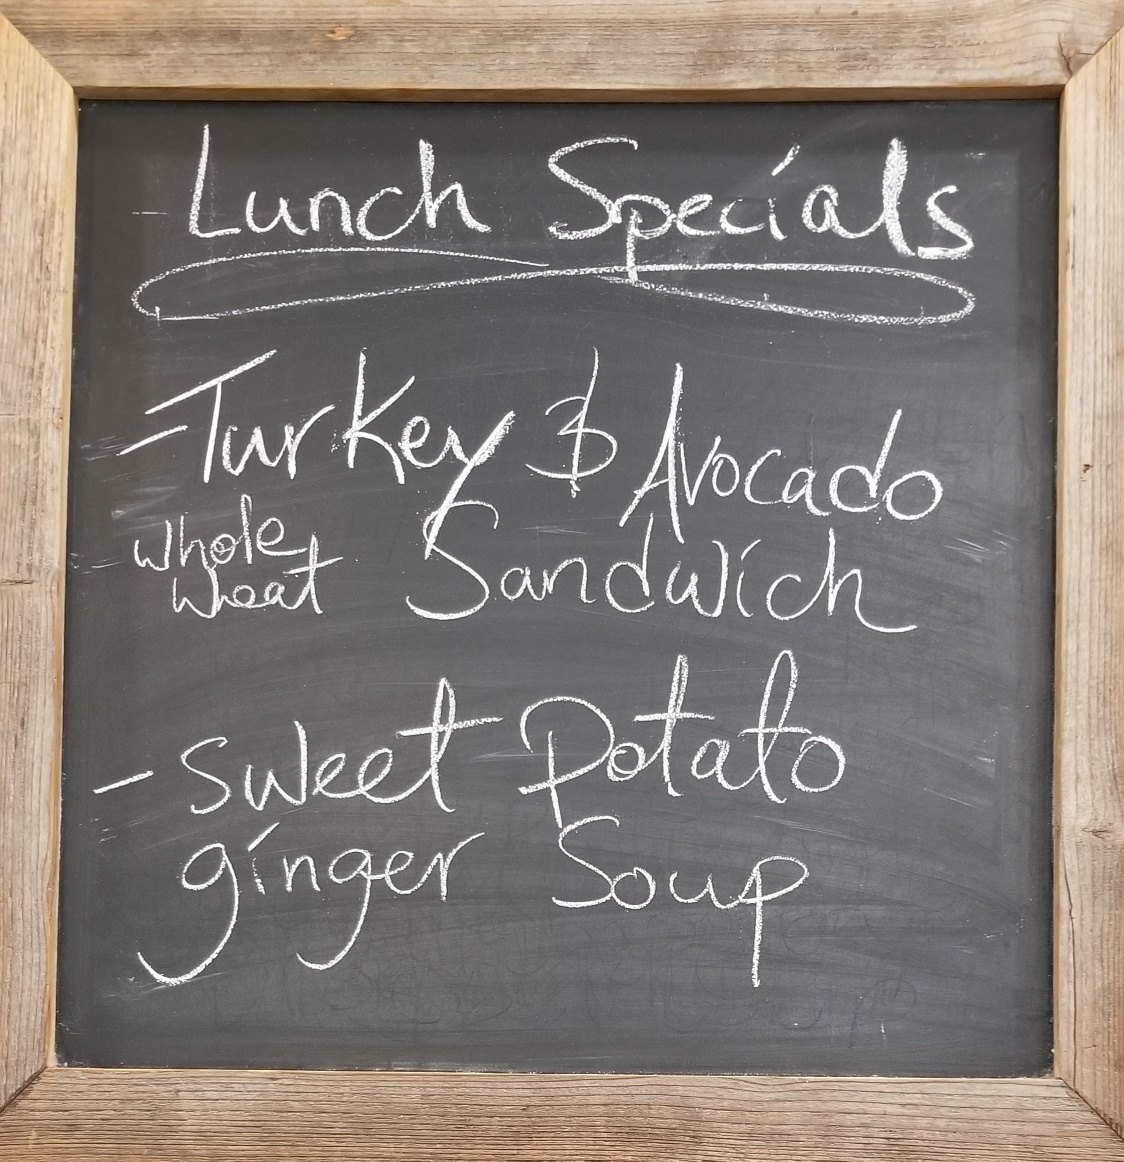 Lunch Specials
- Turkey & Avocado
whole
wheat Sandwich
- sweet potato
ginger Soup